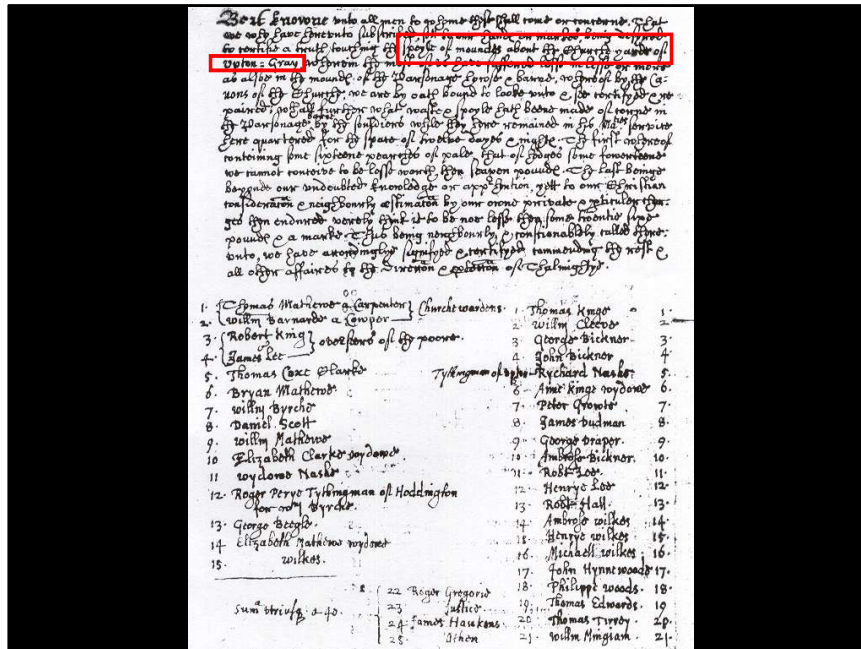 Be it knowne unto all men to whome these shall come or concerne. That
we who have hereunto subscribed by our hands or markes being desired
to certifie a truth touching the spoyle of mounds about the Church yarde of
Upton = Gray wherein the most have suffered losse in lesse or more
as alsoe in the mounds of the Parsonage howse & barne, whereof by the Ca-
nons of the Churche, we are by oath bound to looke unto & see certifyed & re
paired, what further waste & spoyle hath beene made of corne in
the Parsonage barne by the souldiers while they here remained in his Ma:ties service
here quartered for the space of twelve dayes & nights. The first whereof
containing some sixteene pearches of pale, that of hedges some fowerteene
we cannot conceive to be lesse worth, then seaven pounds. The last beinge
beyonde our undoubted knowledge or apprhention, yett to our Christian
consideraton & neighbourly estimaton by our owne private & pticuler char-
ges then endured verely think it to be not lesse then some twentie five
pounds & a marke. Thus being neighbourly, & conscionablely called there-
unto, we have accordinglye signifyed & certifyed, commending the rest &
all other affaires to the Directon & of Thalmightye.
1. Thomas Mathewe a Carpenter } Churchwardens.
2. Willm Barnarde a Cowper
3. Robert King } overseers of the poore.
4. James Lee
5. Thomas Coxe Clarke
6. Bryan Mathewe
7. Willm Byrche
8. Daniel Scott
9. Willm Mathewe
10 Elizabeth Clarke wydowe
11 wydowe Nashe
12. Roger Perye Tythingman of Hoddington
for Wm Byrche.
13. George Beegle.
14 Elizabeth Mathewe wydowe
15. wilkes.
Suma utriusq e 40.
1 Thomas Kinge 1.
2 Willm Cleeve 2
3 George Bickner 3.
4 John Bicknor 4.
Tythingman of Upton 5 Rychard Nashe 5.
6 Anne Kinge wydowe 6.
7 Peter Growte 7.
8 James Dudman 8.
9 George Draper. 9.
10 Ambrose Bicknor. 10.
11. Robt Lee. 11.
12. Henrye Lee 12.
13. Robt Hall. 13.
14 Ambrose Wilkes 14.
15 Henrye Wilkes 15.
16. Michaell Wilkes 16.
17. John Hynnewoode 17.
18. Philippe woods. 18.
19. Thomas Edwards. 19
20 Thomas Tirrey 20.
21. Willm Mingiam 21.
22 Roger Gregorie
23 Justice
24 James Hawkens
25 Athen